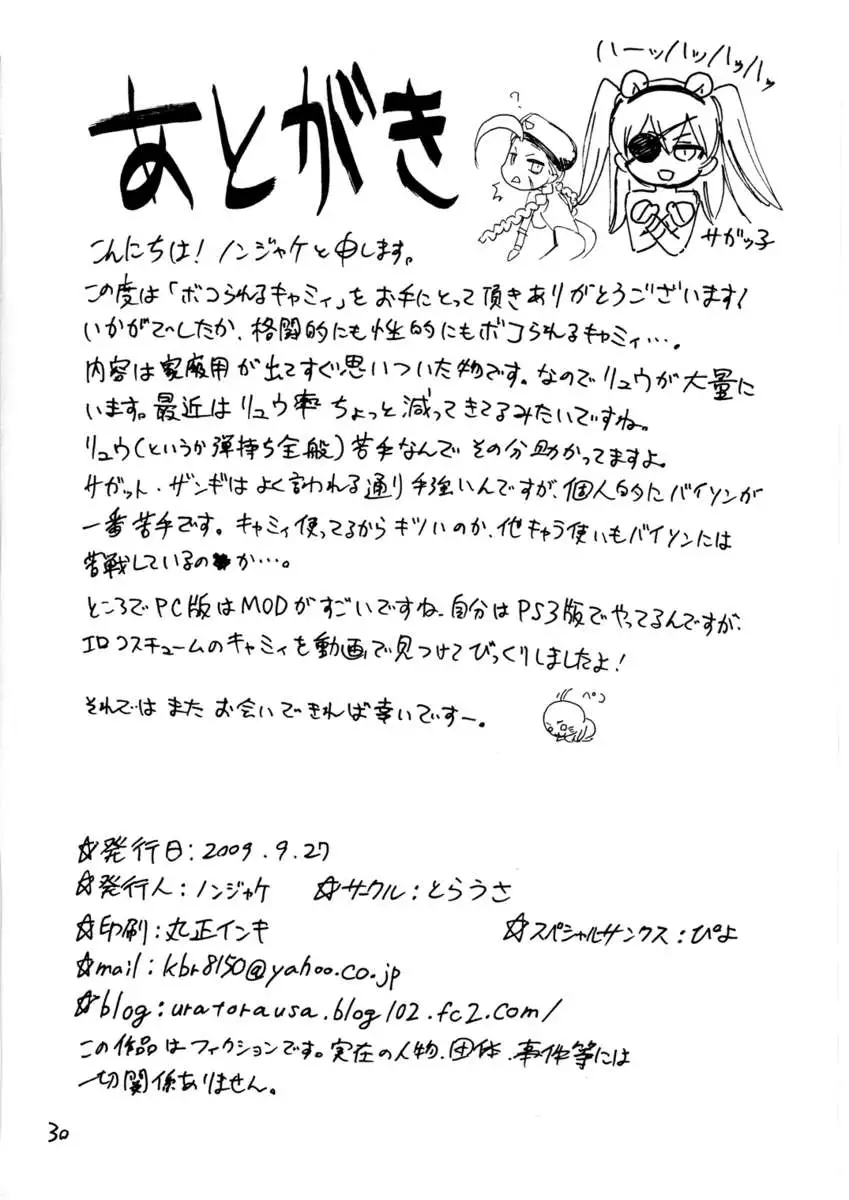 ハーッハッハッハッ
?
あとがき
サガッ子
こんにちは!ノンジャケと申します。
この度は「ボコられるキャミィ」をお手にとって頂きありがとうございます!
いかがでしたか、格闘的にも性的にもボコられるキャミィ…。
内容は家庭用が出てすぐ思いついた物です。なのでリュウが大量に
います。最近はリュウ率ちょっと減ってきてるみたいですね。
リュウ(というか弾持ち全般)苦手なんでその分助かってますよ。
サガット・ザンギはよく言われる通り手強いんですが、個人的にバイソンが
一番苦手です。キャミィ使ってるからキツいのか、他キャラ使いもバイソンには
苦戦しているのか…。
ところでPC版はMODがすごいですね、自分はPS3版でやってるんですが、
エロコスチュームのキャミィを動画で見つけてびっくりしましたよ!
それではまたお会いできれば幸いですー。
ペコ
☆発行日:2009.9.27
☆発行人:ノンジャケ ☆サークル:とらうさ
☆印刷:丸正インキ ☆スペシャルサンクス:ぴよ
☆mail:kbr8150@yahoo.co.jp
☆blog:uratorausa.blog102.fc2.com/
この作品はフィクションです。実在の人物、団体、事件等には
一切関係ありません。
30